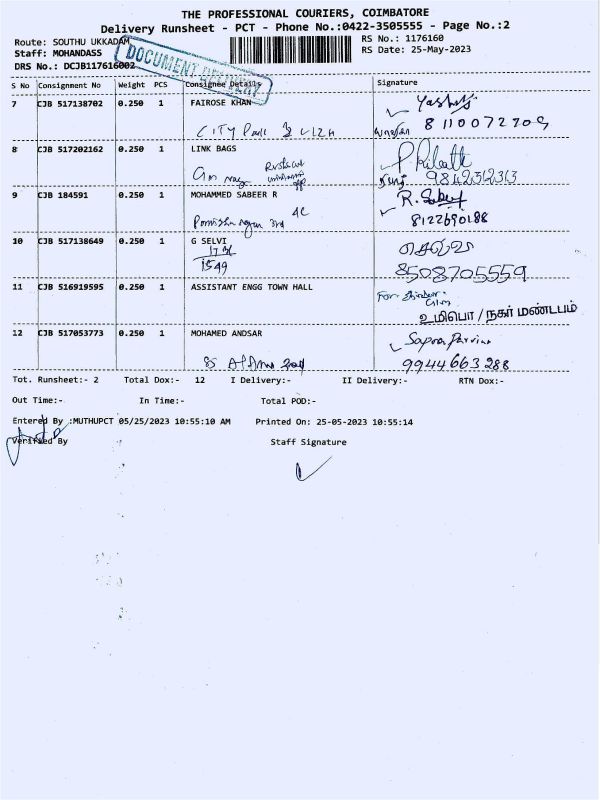 THE PROFESSIONAL COURIERS, COIMBATORE
Delivery Runsheet - PCT - Phone No.:0422-3505555 - Page No.:2
Route: SOUTHU UKKADAM
RS No.: 1176160
Staff: MOHANDASS
RS Date: 25-May-2023
DRS No.: DCJB117616002
DOCUMENT DELIVERY
S No Consignment No Weight PCS Consignee Details Signature
7 CJB 517138702 0.250 1 FAIROSE KHAN
CITY
8110072709
8 CJB 517202162 0.250 1 LINK BAGS
9842312313
9 CJB 184591 0.250 1 MOHAMMED SABEER R
R.
3rd
8122690188
10 CJB 517138649 0.250 1 G SELVI செல்வி
1549
8508705559
11 CJB 516919595 0.250 1 ASSISTANT ENGG TOWN HALL
For
உமிபொ / நகர் மண்டபம்
12 CJB 517053773 0.250 1 MOHAMED ANDSAR
9944663288
Tot. Runsheet:- 2 Total Dox:- 12 I Delivery:- II Delivery:- RTN Dox:-
Out Time:- In Time:- Total POD:-
Entered By :MUTHUPCT 05/25/2023 10:55:10 AM Printed On: 25-05-2023 10:55:14
Verified By Staff Signature